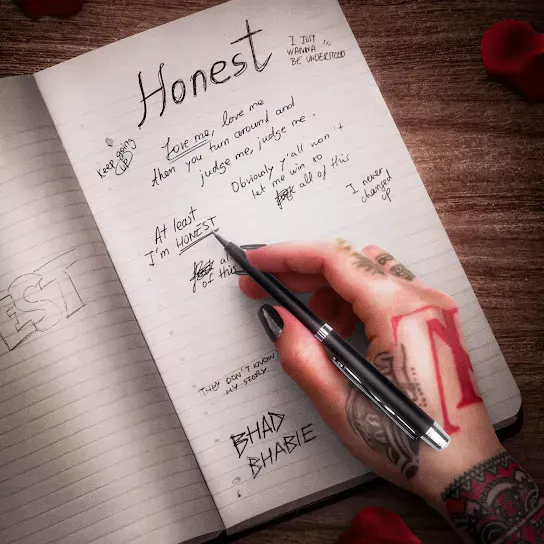 Honest
I JUST
WANNA
BE UNDERSTOOD
Keep going
Love me, love me
then you turn around and
judge me, judge me..
Obviously y'all won't
let me win so
all of this
I never
changed
up
At least
I'm HONEST
of this
EST
THEY DON'T KNOW
MY STORY
BHAD
BHABIE